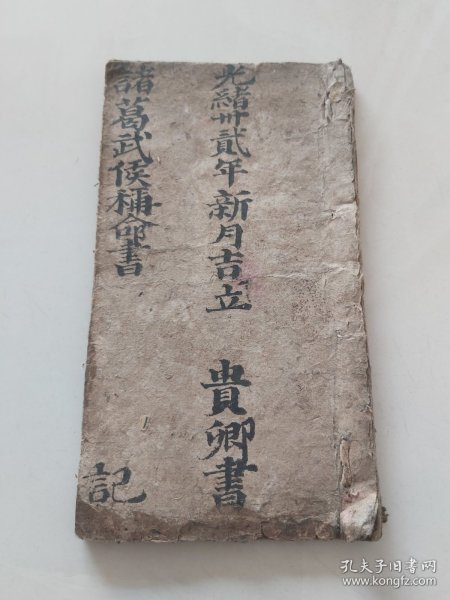 光緒卅貳年新月吉立 貴卿書
諸葛武侯稱命書 記
孔夫子旧书网
www.kongfz.com